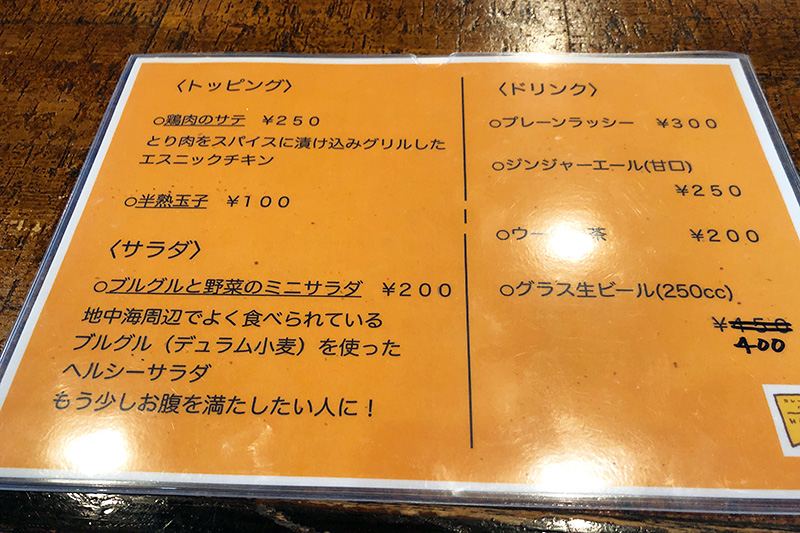 〈トッピング〉
○鶏肉のサテ ¥250
とり肉をスパイスに漬け込みグリルした
エスニックチキン
○半熟玉子 ¥100
〈サラダ〉
○ブルグルと野菜のミニサラダ ¥200
地中海周辺でよく食べられている
ブルグル（デュラム小麦）を使った
ヘルシーサラダ
もう少しお腹を満たしたい人に！
〈ドリンク〉
○プレーンラッシー ¥300
○ジンジャーエール(甘口)
¥250
○ウー 茶 ¥200
○グラス生ビール(250cc)
¥450
400